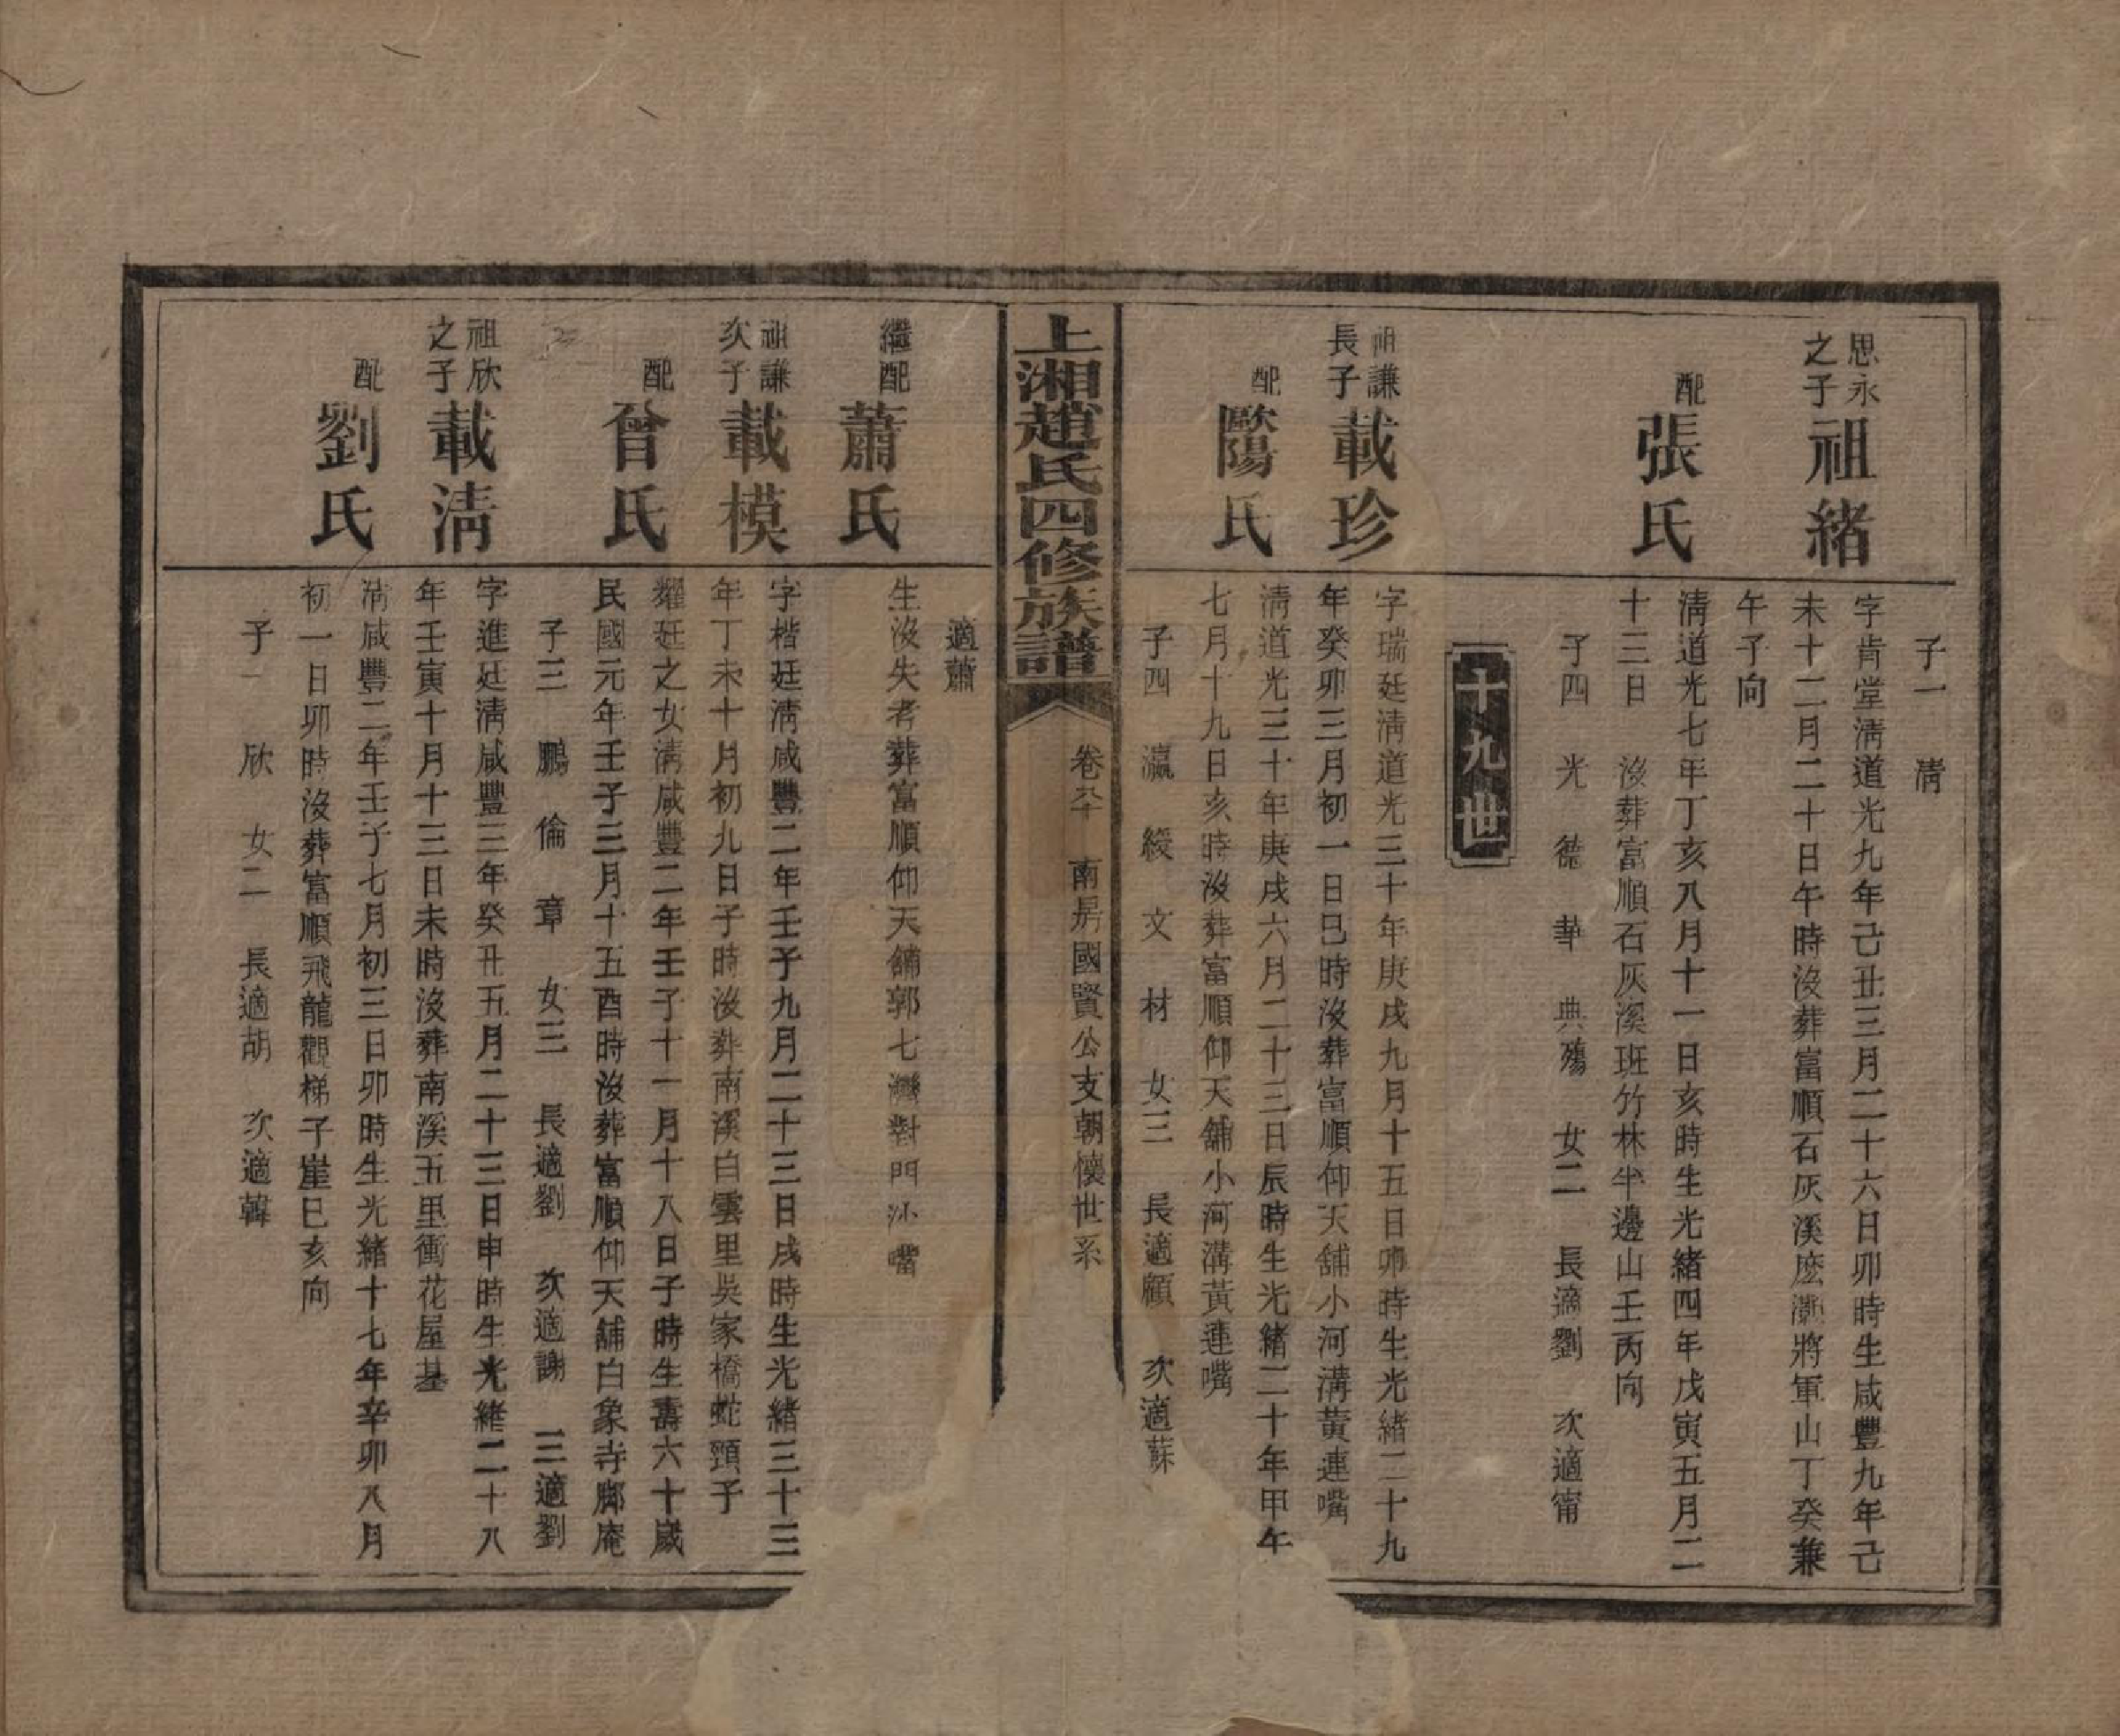 子一 清
思永之子 祖緒
字肯堂清道光九年己丑三月二十六日卯時生咸豐九年己
未十二月二十日午時沒葬富順石灰溪將軍山丁癸兼
午子向
配 張氏
清道光七年丁亥八月十一日亥時生光緒四年戊寅五月二
十三日 沒葬富順石灰溪班竹林半邊山壬丙向
子四 光 德 華 典殤 女二 長適劉 次適甯
十九世
祖謙長子 載珍
字瑞廷清道光三十年庚戌九月十五日卯時生光緒二十九
年癸卯三月初一日巳時沒葬富順仰天舖小河溝黃連嘴
配 陽氏
清道光三十年庚戌六月二十三日辰時生光緒二十年甲午
七月十九日亥時沒葬富順仰天舖小河溝黃連嘴
子四 瀛 綬 文 材 女三 長適顧 次適蘇
上湘趙氏四修族譜
卷九十 南房國賢公支朝懷世系
適蕭
繼配 蕭氏
生沒失考葬富順仰天舖郭七灣對門沙嘴
祖謙次子 載模
字楷廷清咸豐二年壬子九月二十三日戌時生光緒三十三
年丁未十月初九日子時沒葬南溪白雲里吳家橋蛇頸子
配 曾氏
耀廷之女清咸豐二年壬子十一月十八日子時生壽六十歲
民國元年壬子三月十五酉時沒葬富順仰天舖白象寺腳庵
子三 鵬 倫 章 女三 長適劉 次適謝 三適劉
祖欣之子 載清
字進廷清咸豐三年癸丑五月二十三日申時生光緒二十八
年壬寅十月十三日未時沒葬南溪五里衝花屋基
配 劉氏
清咸豐二年壬子七月初三日卯時生光緒十七年辛卯八月
初一日卯時沒葬富順飛龍觀梯子崖巳亥向
子一 欣 女二 長適胡 次適韓